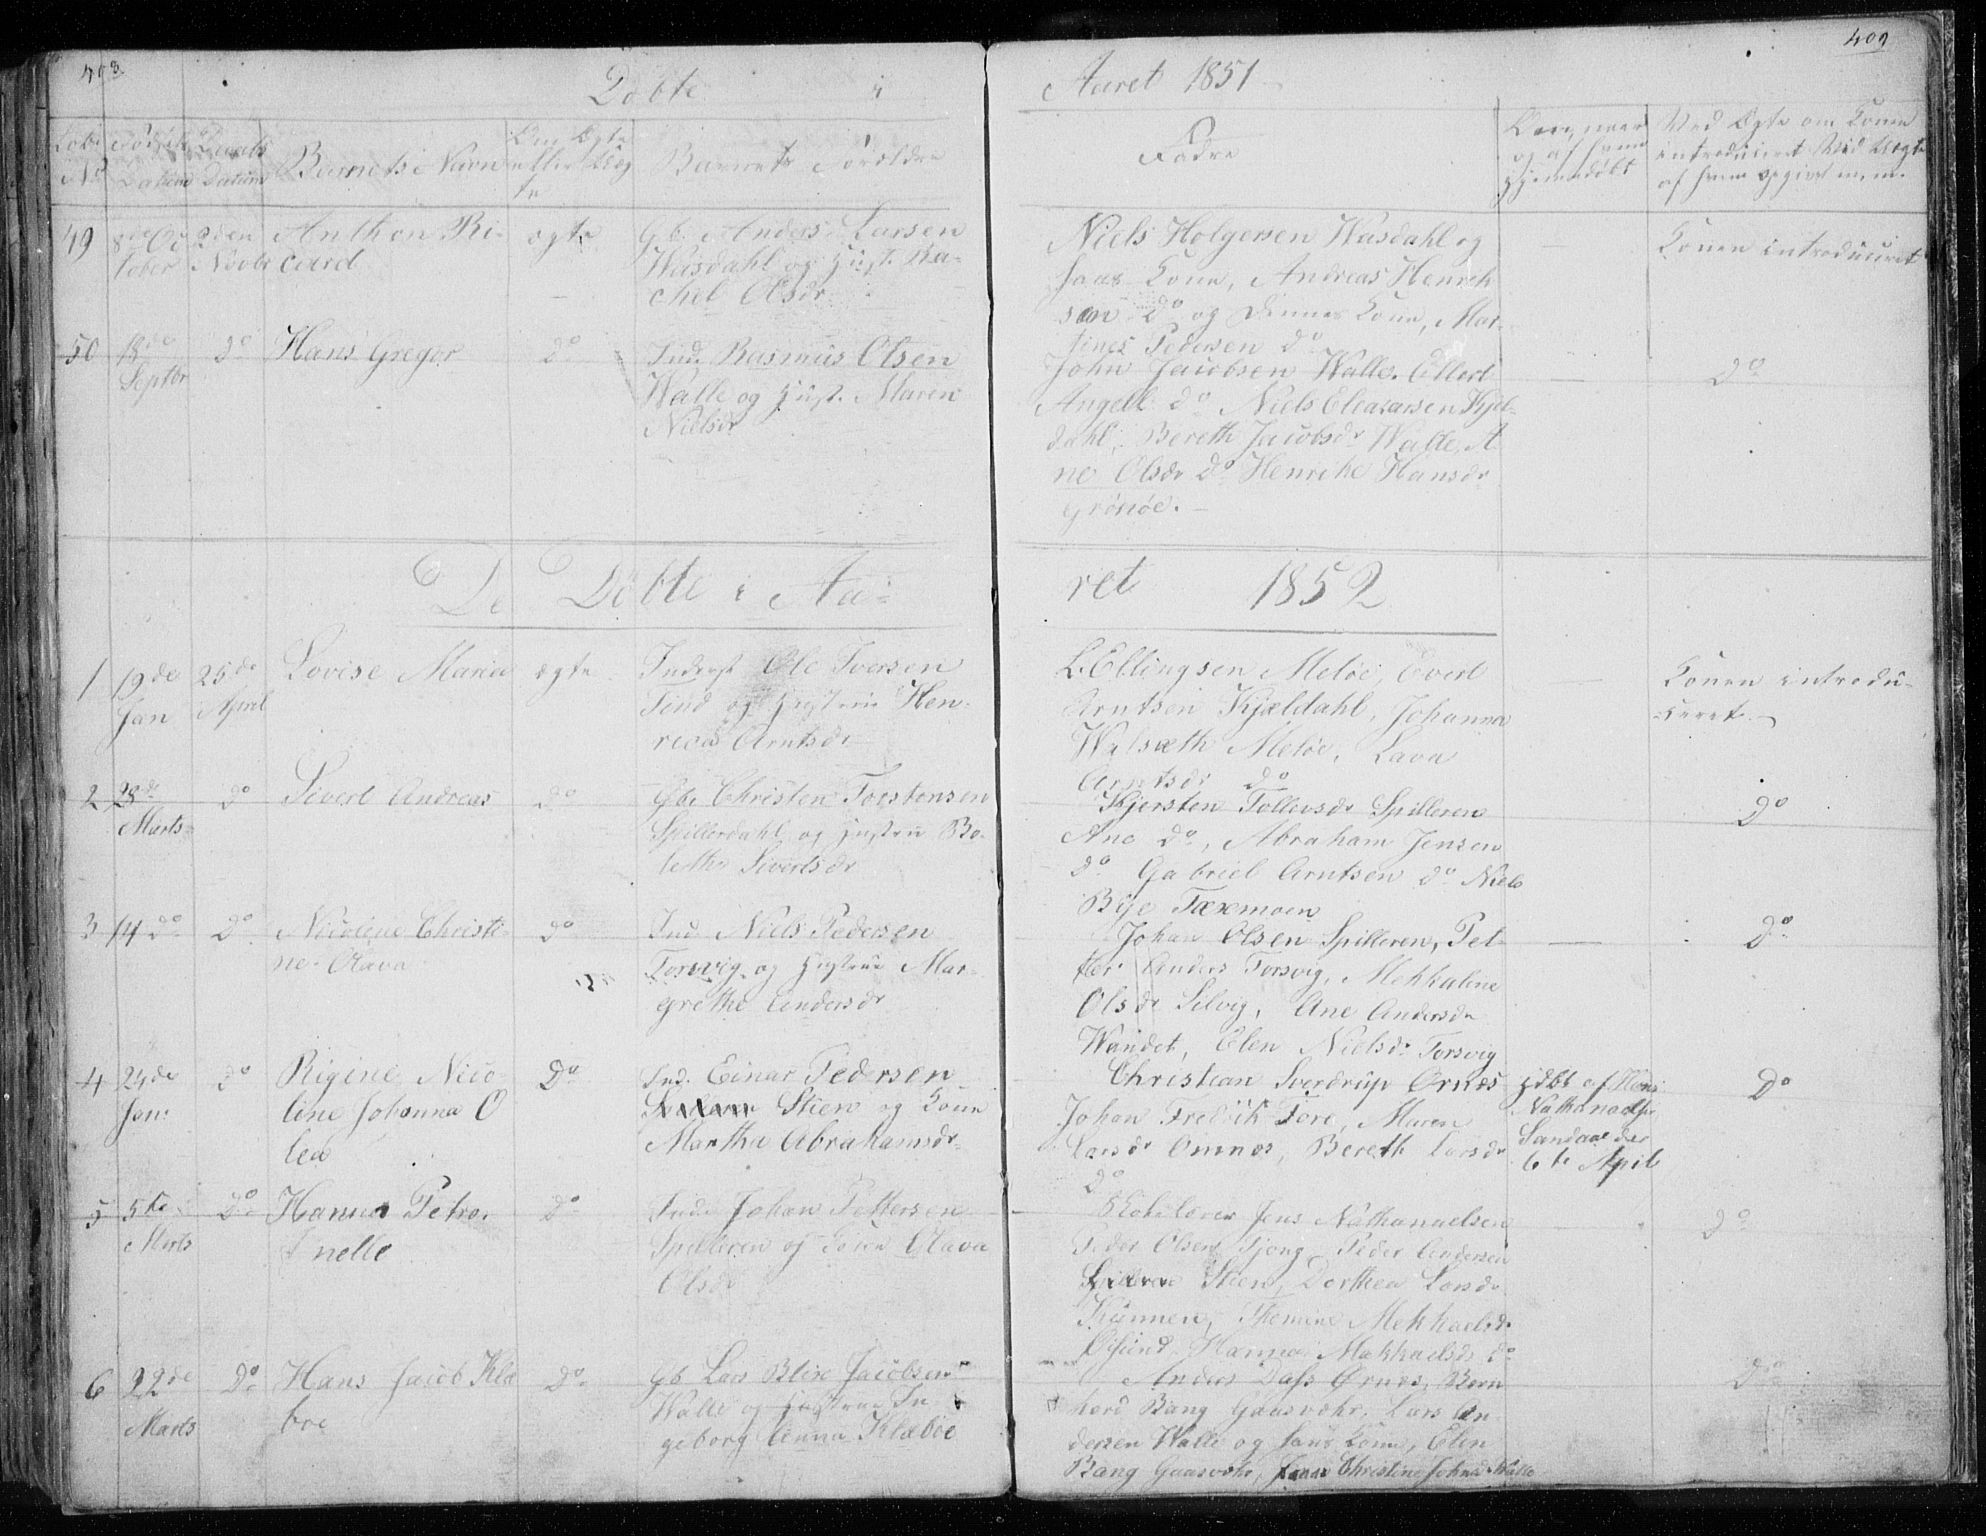 408
409
Døbte i
Aaret 1851
Løbe No
Fødsels Datum
Daabs Datum
Barnets Navn
Om Ægte eller Uægte
Barnets Forældre
Fadre
og af hvem hjemmedøbt
Ved Ægte om Konen
introduceret Ved Uægte
af hvem opgivet m. m.
49
8de October
2den Novbr
Anthon Ricard
ægte
Gb. Anders Larsen
Wasdahl og Hust. Rachel Olsdr
Niels Holgersen Wasdahl og
hans Kone, Andreas Henrik
sen do og dennes Kone, Mar
tines Pedersen do
Konen introduceret
50
18de Septbr
do
Hans Gregor
do
Ind. Rasmus Olsen
Walle og Hust. Maren
Nielsdr
John Jacobsen Walle, Ellert
Angell do Niels Eleasarsen Kjel-
dahl, Bereth Jacobsdr Walle, A
ne Olsdr do Henrike Hansdr
Grønøe.
do
De Døbte i Aa-
ret 1852
1
19de Jan
25de April
Lovise Maria
ægte
Inderst Ole Iversen
Find og Hustrue Hen-
rica Arntsdr
L. Ellingsen Meløe, Evert
Arntsen Kjældahl, Johanna
Walsæth Meløe, Lava
Arntsdr do
Konen introdu-
ceret
2
28de Marts
do
Sivert Andreas
do
Gb. Christen Torstensen
Spillerdahl og Hustru Bo-
lethe Sivertsdr
Kjersten Tollevsdr Spilleren
Ane do, Abraham Jensen
do Gabriel Arntsen do Niels
Bye Tæremoen
do
3
14 do
do
Nicoline Christi-
ne Olava
do
Ind Niels Pedersen
Torsvig og Hustrue Mar-
grethe Andersdr
Johan Olsen Spilleren, Pet-
ter Anders Torsvig, Mekkaline
Olsdr Selvig, Ane Andersdr
Wandet, Elen Nielsdr Torsvig
do
4
24de Jan:
do
Rigine Nico-
line Johanna O
lea
Do
Ind. Einar Pedersen
Stien og Kone
Martha Abrahamsdr
Christian Sverdrup Ørnæs
Johan Fredrik Fore, Maren
Larsdr Omnes, Bereth Larsdr
do
hdbt af Mons
Nathanaelsen
Sandaa der
6te April
Do
5
5te Marts
Do
Hanna Petro-
nelle
do
Ind. Johan Pettersen
Spilleren og Kone Olava
Olsdr
Skolelærer Jens Nathanaelsen
Peder Olsen Tjong Peder Andersen
Stien, Dorthea Larsdr
Kunnen, Themine Mekkaelsdr
Øsund, Hanna Mekkaelsdr do
do
6
22de Marts
Do
Hans Jacob Klæ
boe
Do
Gb Lars Blix Jacobsen
Walle og Hustrue In
geborg Anna Klæboe
Anders Dass Ørnes, Bern
hard Bang Gaasvær, Lars An-
dersen Walle og hans Kone, Elen
Bang Gaasvær, Christine Johnsdr Walle
Do